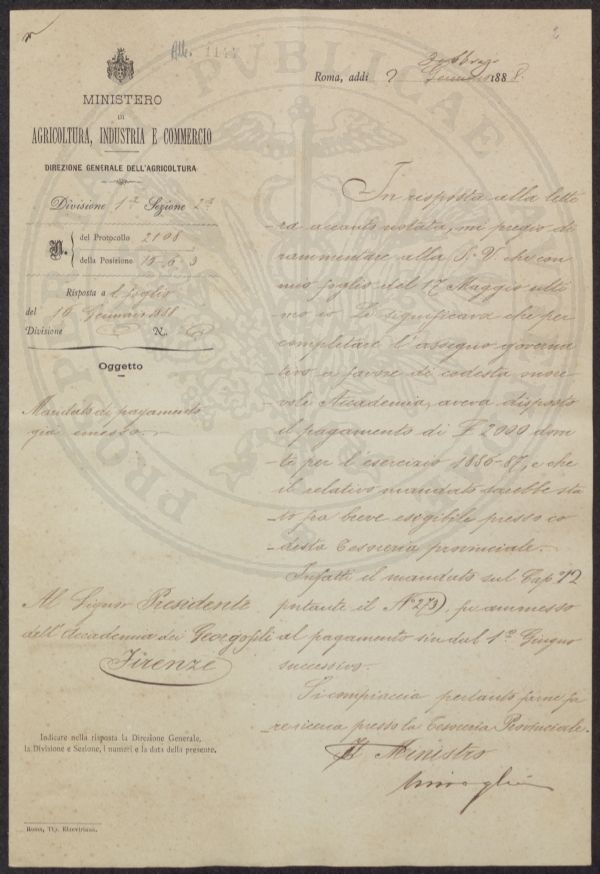 All. 1141
2
MINISTERO
DI
AGRICOLTURA, INDUSTRIA E COMMERCIO
DIREZIONE GENERALE DELL'AGRICOLTURA
Divisione 1ª Sezione 2ª
N. del Protocollo 2108
della Posizione 15-6-3
Risposta a foglio
del 16 Gennaio 1888
Divisione N.
Oggetto
Mandato di pagamento
già emesso.
Al Signor Presidente
dell'Accademia dei Georgofili
Firenze
Indicare nella risposta la Direzione Generale,
la Divisione e Sezione, i numeri e la data della presente.
Roma, Tip. Elzeviriana.
Febbraio
Roma, addì 2 Gennaio 1888.
In risposta alla lette
-ra accanto notata, mi pregio di
rammentare alla S. V. che con
mio foglio del 17 Maggio ulti
mo io Le significava che per
completare l'assegno governa
tivo a favore di codesta onore
vole Accademia, aveva disposto
il pagamento di £ 2000 dovu
te per l'esercizio 1886-87, e che
il relativo mandato sarebbe sta
to fra breve esigibile presso co
-desta Tesoreria provinciale.
Infatti il mandato sul Cap.º 72
portante il Nº 273, fu ammesso
al pagamento sin dal 1º Giugno
successivo.
Si compiaccia pertanto farne fa
re ricerca presso la Tesoreria Provinciale.
Il Ministro
PRO PUBLICAE